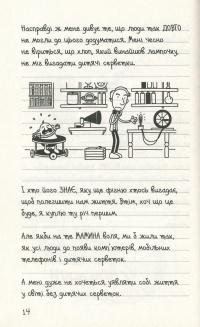 Насправді ж мене дивує те, що люди так ДОВГО
не могли до цього додуматися. Мені чесно
не віриться, що хлоп, який винайшов лампочку,
не міг вигадати дитячі серветки.
І хто його ЗНАЄ, яку ще фігню хтось вигадає,
щоб полегшити нам життя. Втім, хоч що це
буде, я куплю ту річ першим.
Але якби на те МАМИНА воля, ми б жили так,
як усі люди до появи комп'ютерів, мобільних
телефонів і дитячих серветок.
А мені дуже не хочеться уявляти собі життя
у світі без дитячих серветок.
14